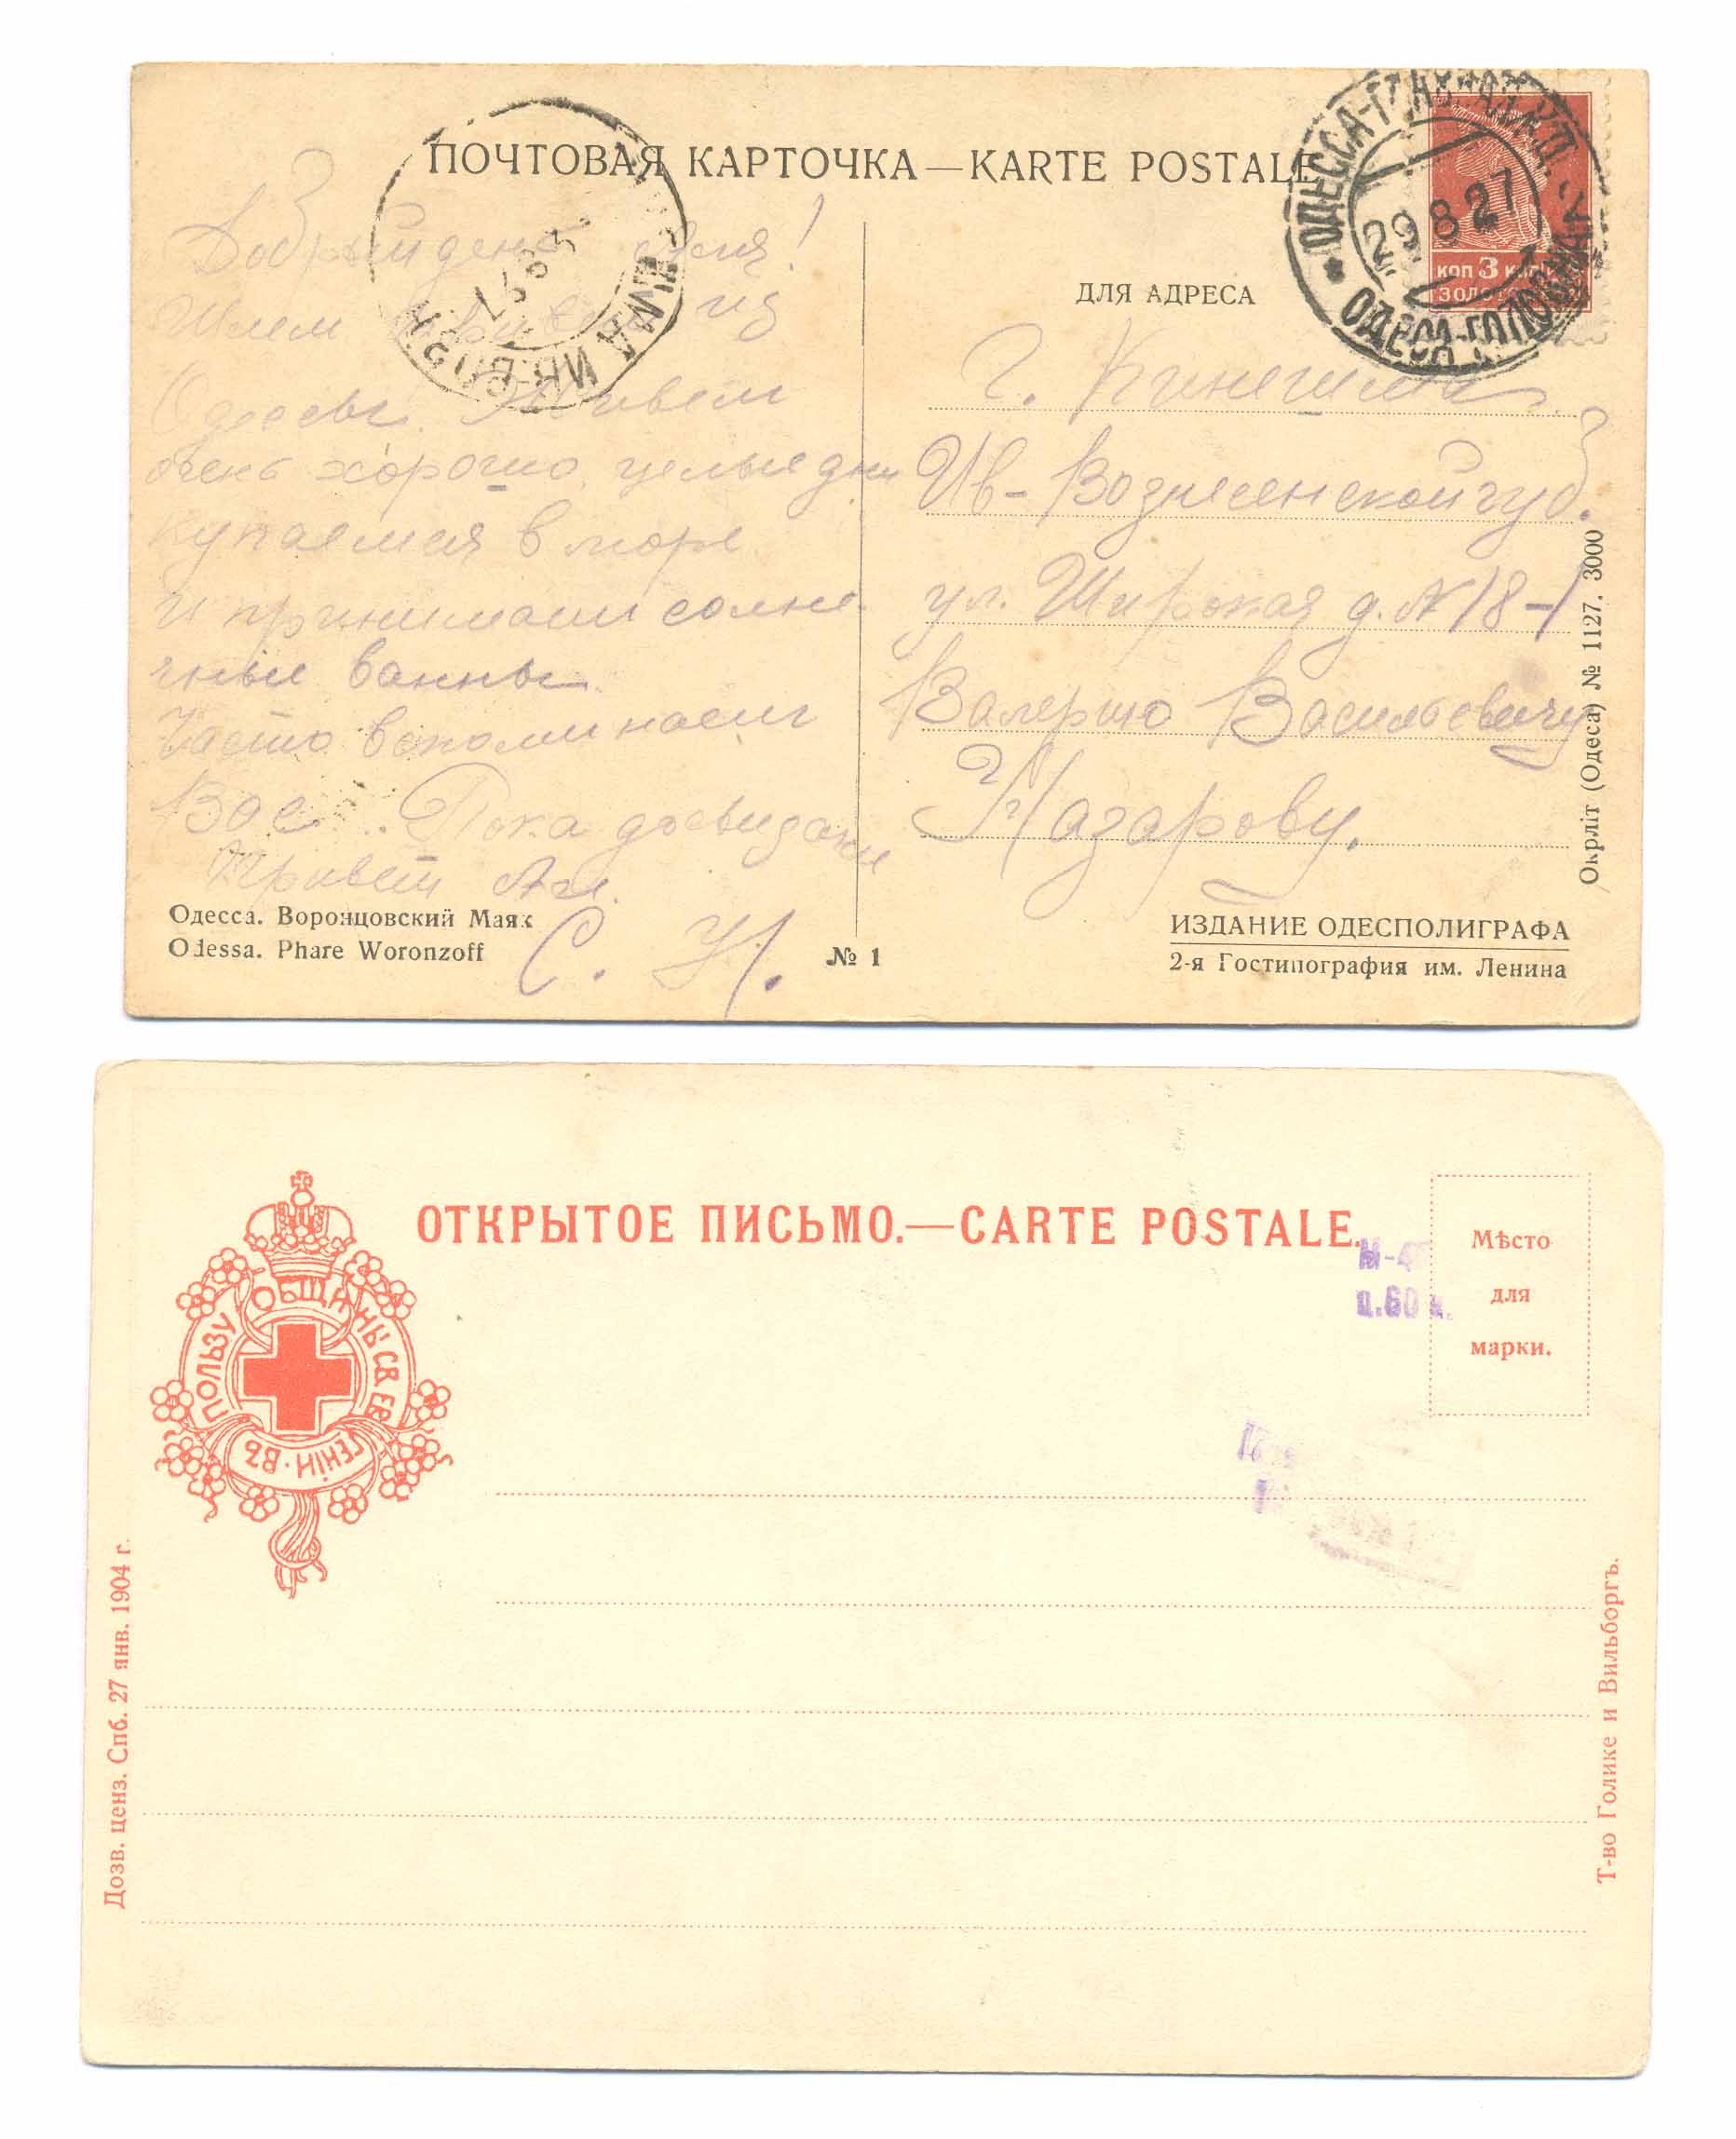 ПОЧТОВАЯ КАРТОЧКА — KARTE POSTALE
ДЛЯ АДРЕСА
ОДЕССА
29 8 27
ОДЕСА-ГОЛОВНА
КОП 3 КОП
ЗОЛОТ
Добрый день
Шлем привет из
Одессы. Живем
очень хорошо, целые дни
купаемся в море
и принимаем солне-
чные ванны.
Часто вспоминаем
Вас. Пока досвидани
Привет
С. Н.
г. Кинешма
Ив-Вознесенской губ.
ул. Широкая д. № 18-1
Валерию Васильевичу
Назарову.
Одесса. Воронцовский Маяк
Odessa. Phare Woronzoff
№ 1
ИЗДАНИЕ ОДЕСПОЛИГРАФА
2-я Гостипография им. Ленина
Окрліт (Одеса) № 1127. 3000
ОТКРЫТОЕ ПИСЬМО.—CARTE POSTALE.
Мѣсто
для
марки.
ц.60 к.
ВЪ ПОЛЬЗУ ОБЩИНЫ СВ ЕВГЕНІИ
Дозв. ценз. Спб. 27 янв. 1904 г.
Т-во Голике и Вильборгъ.